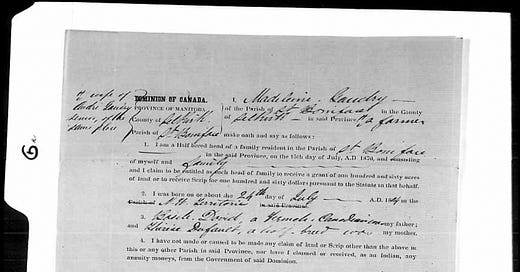 of wife of
André Gaudry
senior, of the
same place
6
DOMINION OF CANADA.
PROVINCE OF MANITOBA,
County of Selkirk
Parish of St Boniface
I, Madeleine Gaudry
of the Parish of St Boniface in the County
of Selkirk in said Province, a farmer
make oath and say as follows:
1. I am a Half breed head of a family resident in the Parish of St Boniface
in the said Province, on the 15th day of July, A.D. 1870, and consisting
of myself and family
and I claim to be entitled as such head of family to receive a grant of one hundred and sixty acres
of land or to receive Scrip for one hundred and sixty dollars pursuant to the Statute in that behalf.
2. I was born on or about the 24th day of July A.D. 18
N. W. Territories in said Province.
3. David, a French Canadian my father;
and Thérèse Dufault, a half breed was my mother.
4. I have not made or caused to be made any claim of land or Scrip other than the above in
this or any other Parish in said Province, nor have I claimed or received, as an Indian, any
annuity moneys, from the Government of said Dominion.